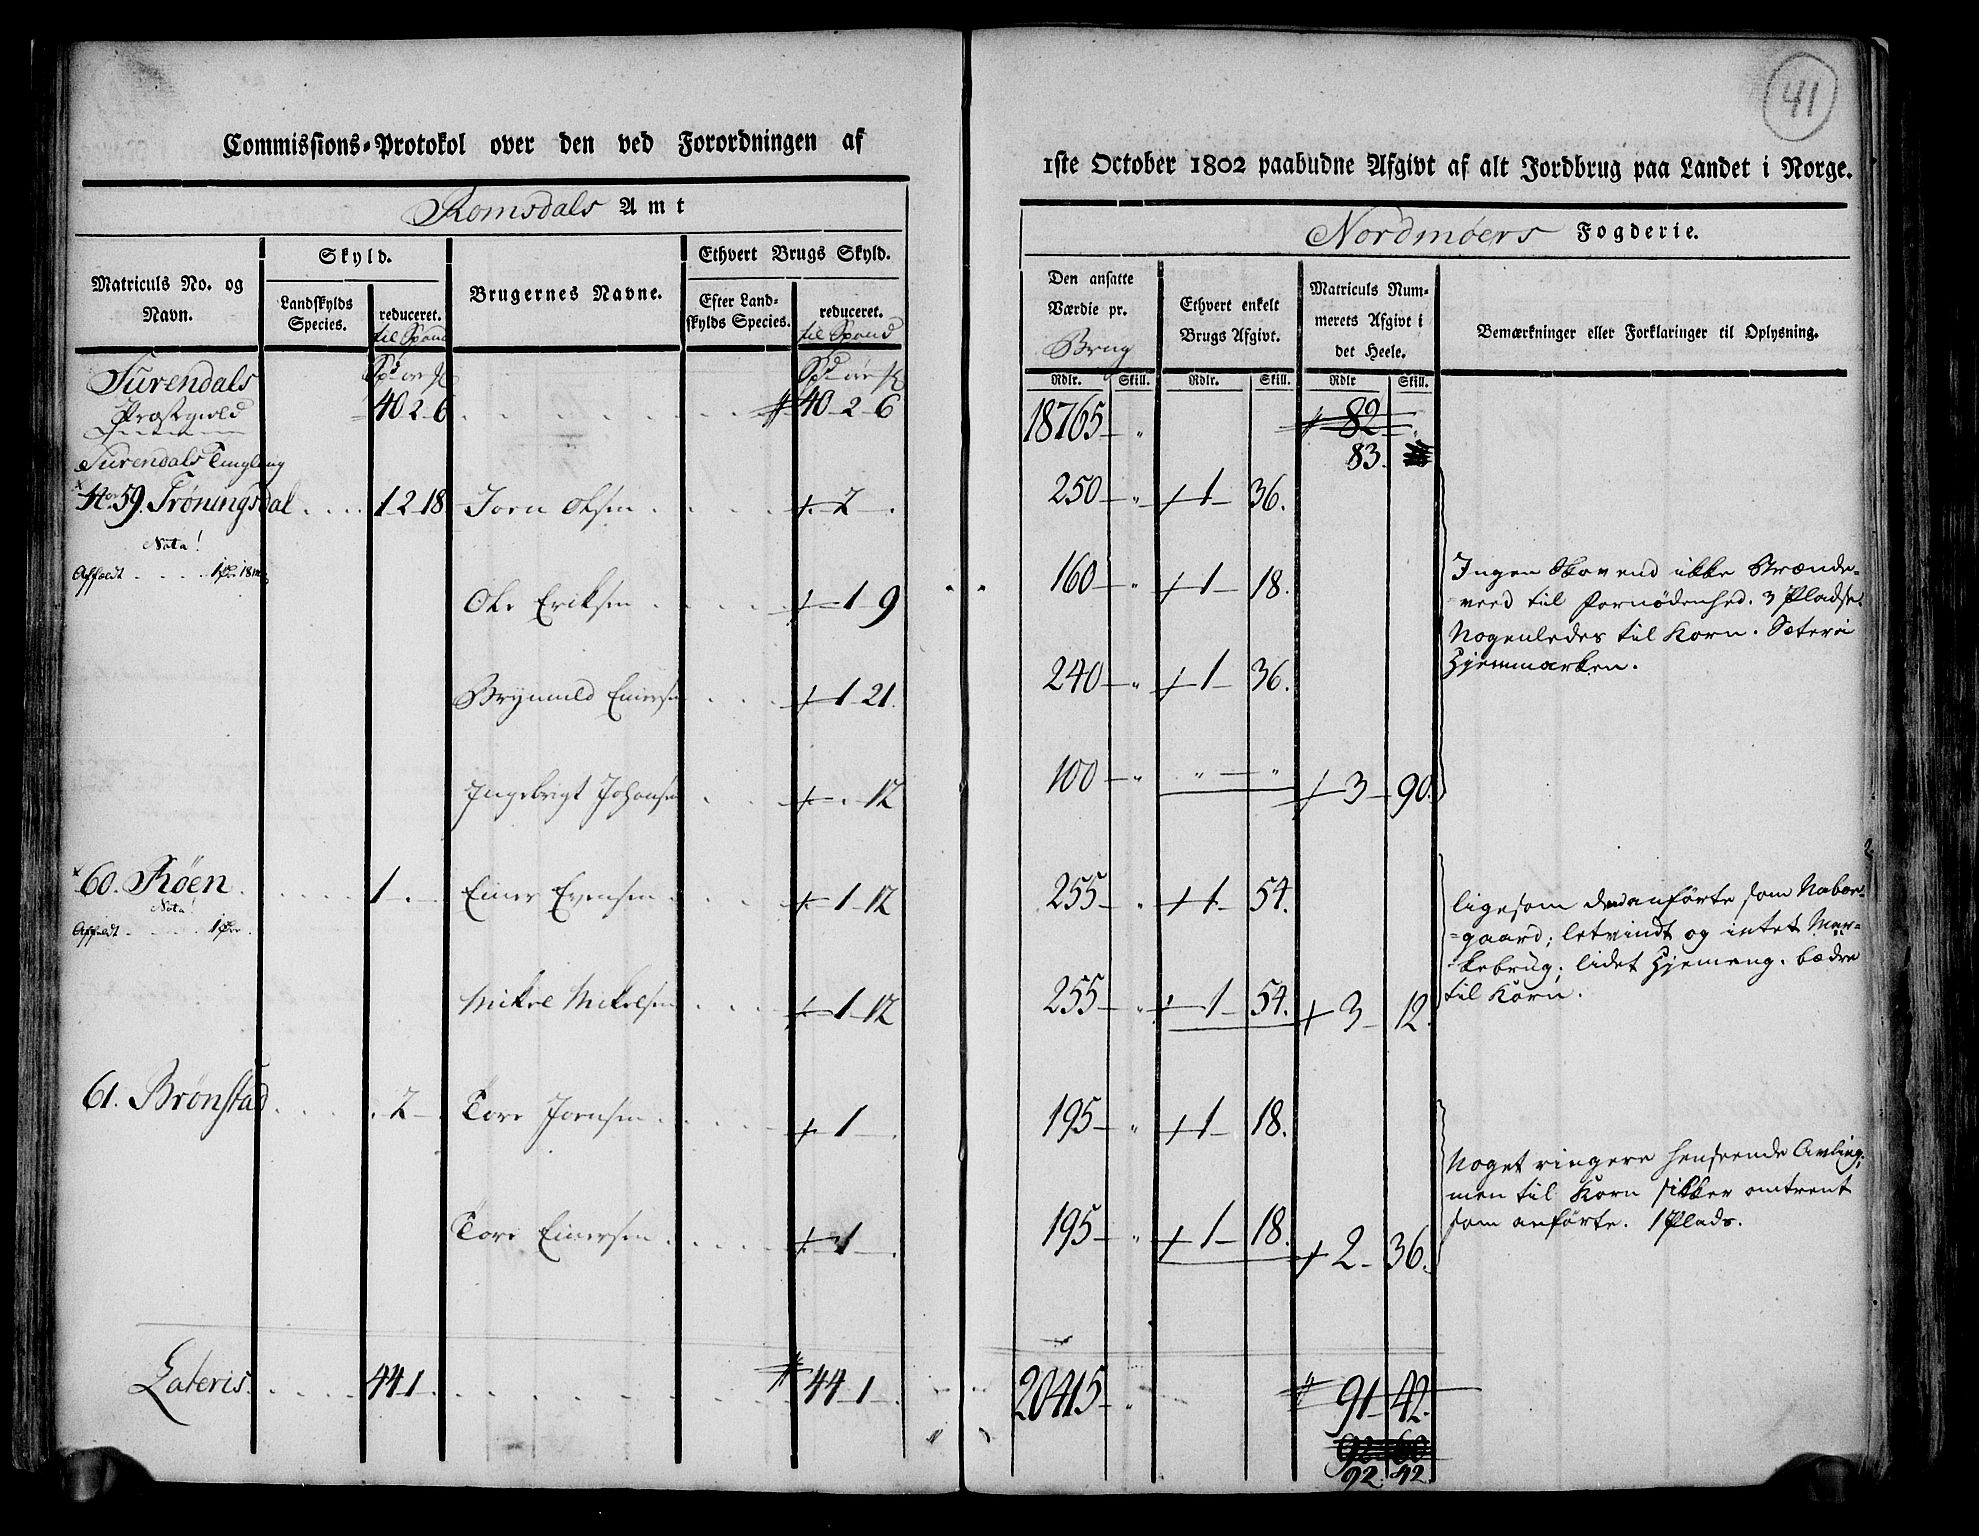 41
Commissions-Protokol over den ved Forordningen af
1ste October 1802 paabudne Afgivt af alt Jordbrug paa Landet i Norge.
Romsdals Amt
Nordmøers Fogderie.
Matriculs No. og Navn.
Skyld.
Landskylds Species.
reduceret. til Spand
Brugernes Navne.
Ethvert Brugs Skyld.
Efter Landskylds Species.
reduceret. til Spand
Den ansatte Værdie pr. Brug
Ethvert enkelt Brugs Afgivt.
Matriculs Nummerets Afgivt i det Heele.
Bemærkninger eller Forklaringer til Oplysning.
Rdlr. Skill. Rdlr. Skill. Rdlr Skill.
Surendals
Præstegield 40 2 6 40 2 6 18765 " 82
83.
Surendals Tinglaug
No. 59. Trøningsdal 1 2 18 Joen Olsen 2 250 " 1 36.
Nota!
Affældt
Ole Eriksen 1 9 160 " 1 18.
Brynnild Einersen 1 21. 240 " 1 36.
Ingebrigt Johansen 12 100 " " " 3 90.
Ingen Skov end ikke Brænde-
veed til Fornødenhed. 3 Pladse.
Nogenledes til Korn. Sæter i
Hjemmarken.
60. Røen 1 Einer Evensen 1 12 255 " 1 54.
Nota!
Affældt
Mikel Mikelsen 1 12 255 " 1 54. 3 12.
ligesom anførte som Naboe-
gaard; letvindt og intet Mar-
kebrug; lidet Hjemeng. bædre
til Korn.
61. Brønstad 2 Tore Joensen 1 195 " 1 18.
Tore Einersen 1 195 " 1 18. 2 36.
Noget ringere henseende Avling;
men til Korn sikker omtrent
som anførte. 1 Plads.
Lateris 44 1 44 1 20415 " 91 42.
92 60
92. 42.